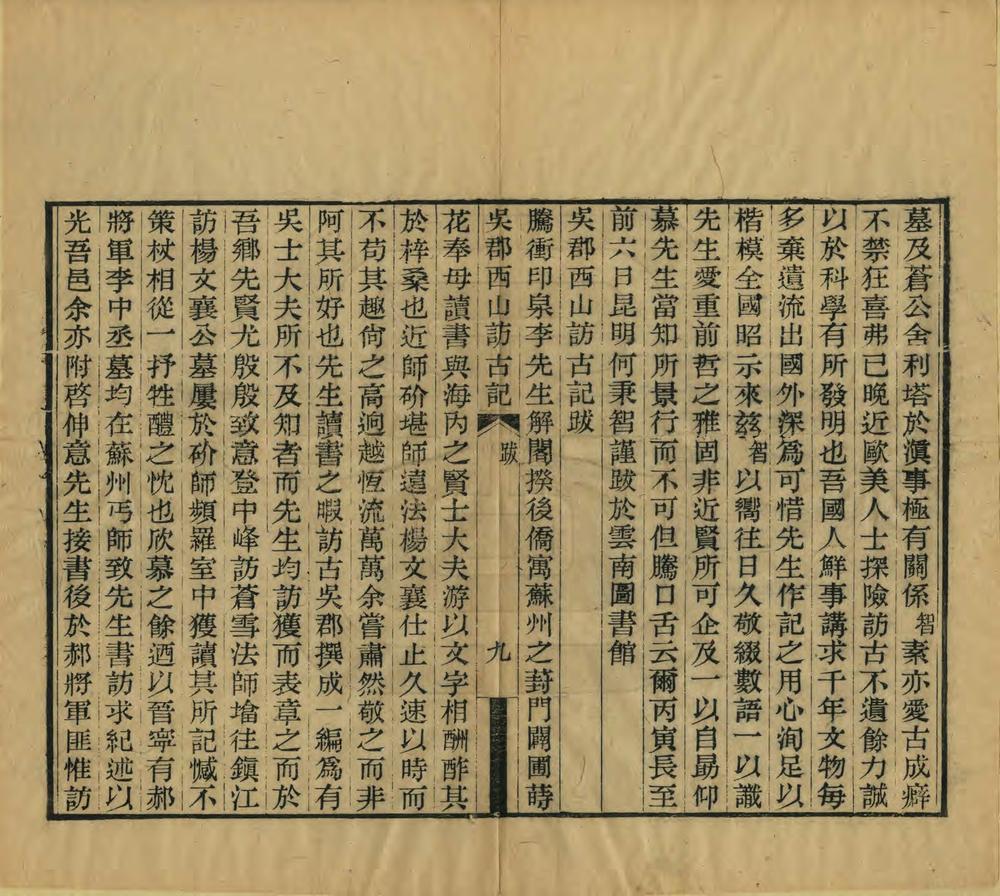 墓及蒼公舍利塔於滇事極有關係智素亦愛古成癖
不禁狂喜弗已晚近歐美人士探險訪古不遺餘力誠
以於科學有所發明也吾國人鮮事講求千年文物每
多棄遺流出國外深為可惜先生作記之用心洵足以
楷模全國昭示來玆智以嚮往日久敬綴數語一以識
先生愛重前哲之雅固非近賢所可企及一以自勗仰
慕先生當知所景行而不可但騰口舌云爾丙寅長至
前六日昆明何秉智謹跋於雲南圖書館
吳郡西山訪古記跋
騰衝印泉李先生解閣揆後僑寓蘇州之葑門闢圃蒔
吳郡西山訪古記 跋 九
花奉母讀書與海內之賢士大夫游以文字相酬酢其
於梓桑也近師砎堪師遠法楊文襄仕止久速以時而
不苟其趣尙之高逈越恆流萬萬余嘗肅然敬之而非
阿其所好也先生讀書之暇訪古吳郡撰成一編爲有
吳士大夫所不及知者而先生均訪獲而表章之而於
吾鄉先賢尤殷殷致意登中峰訪蒼雪法師墖往鎭江
訪楊文襄公墓屢於砎師頻羅室中獲讀其所記憾不
策杖相從一抒牲醴之忱也欣慕之餘迺以晉寧有郝
將軍李中丞墓均在蘇州丐師致先生書訪求紀述以
光吾邑余亦附啓伸意先生接書後於郝將軍匪惟訪